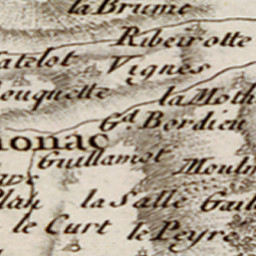 la Brume
Ribeirotte
atelot Vignes
ouquette la Moth
Gd. Bordieu
onac
Guillamot Moulin
la Salle Gail
le Curt le Peyre